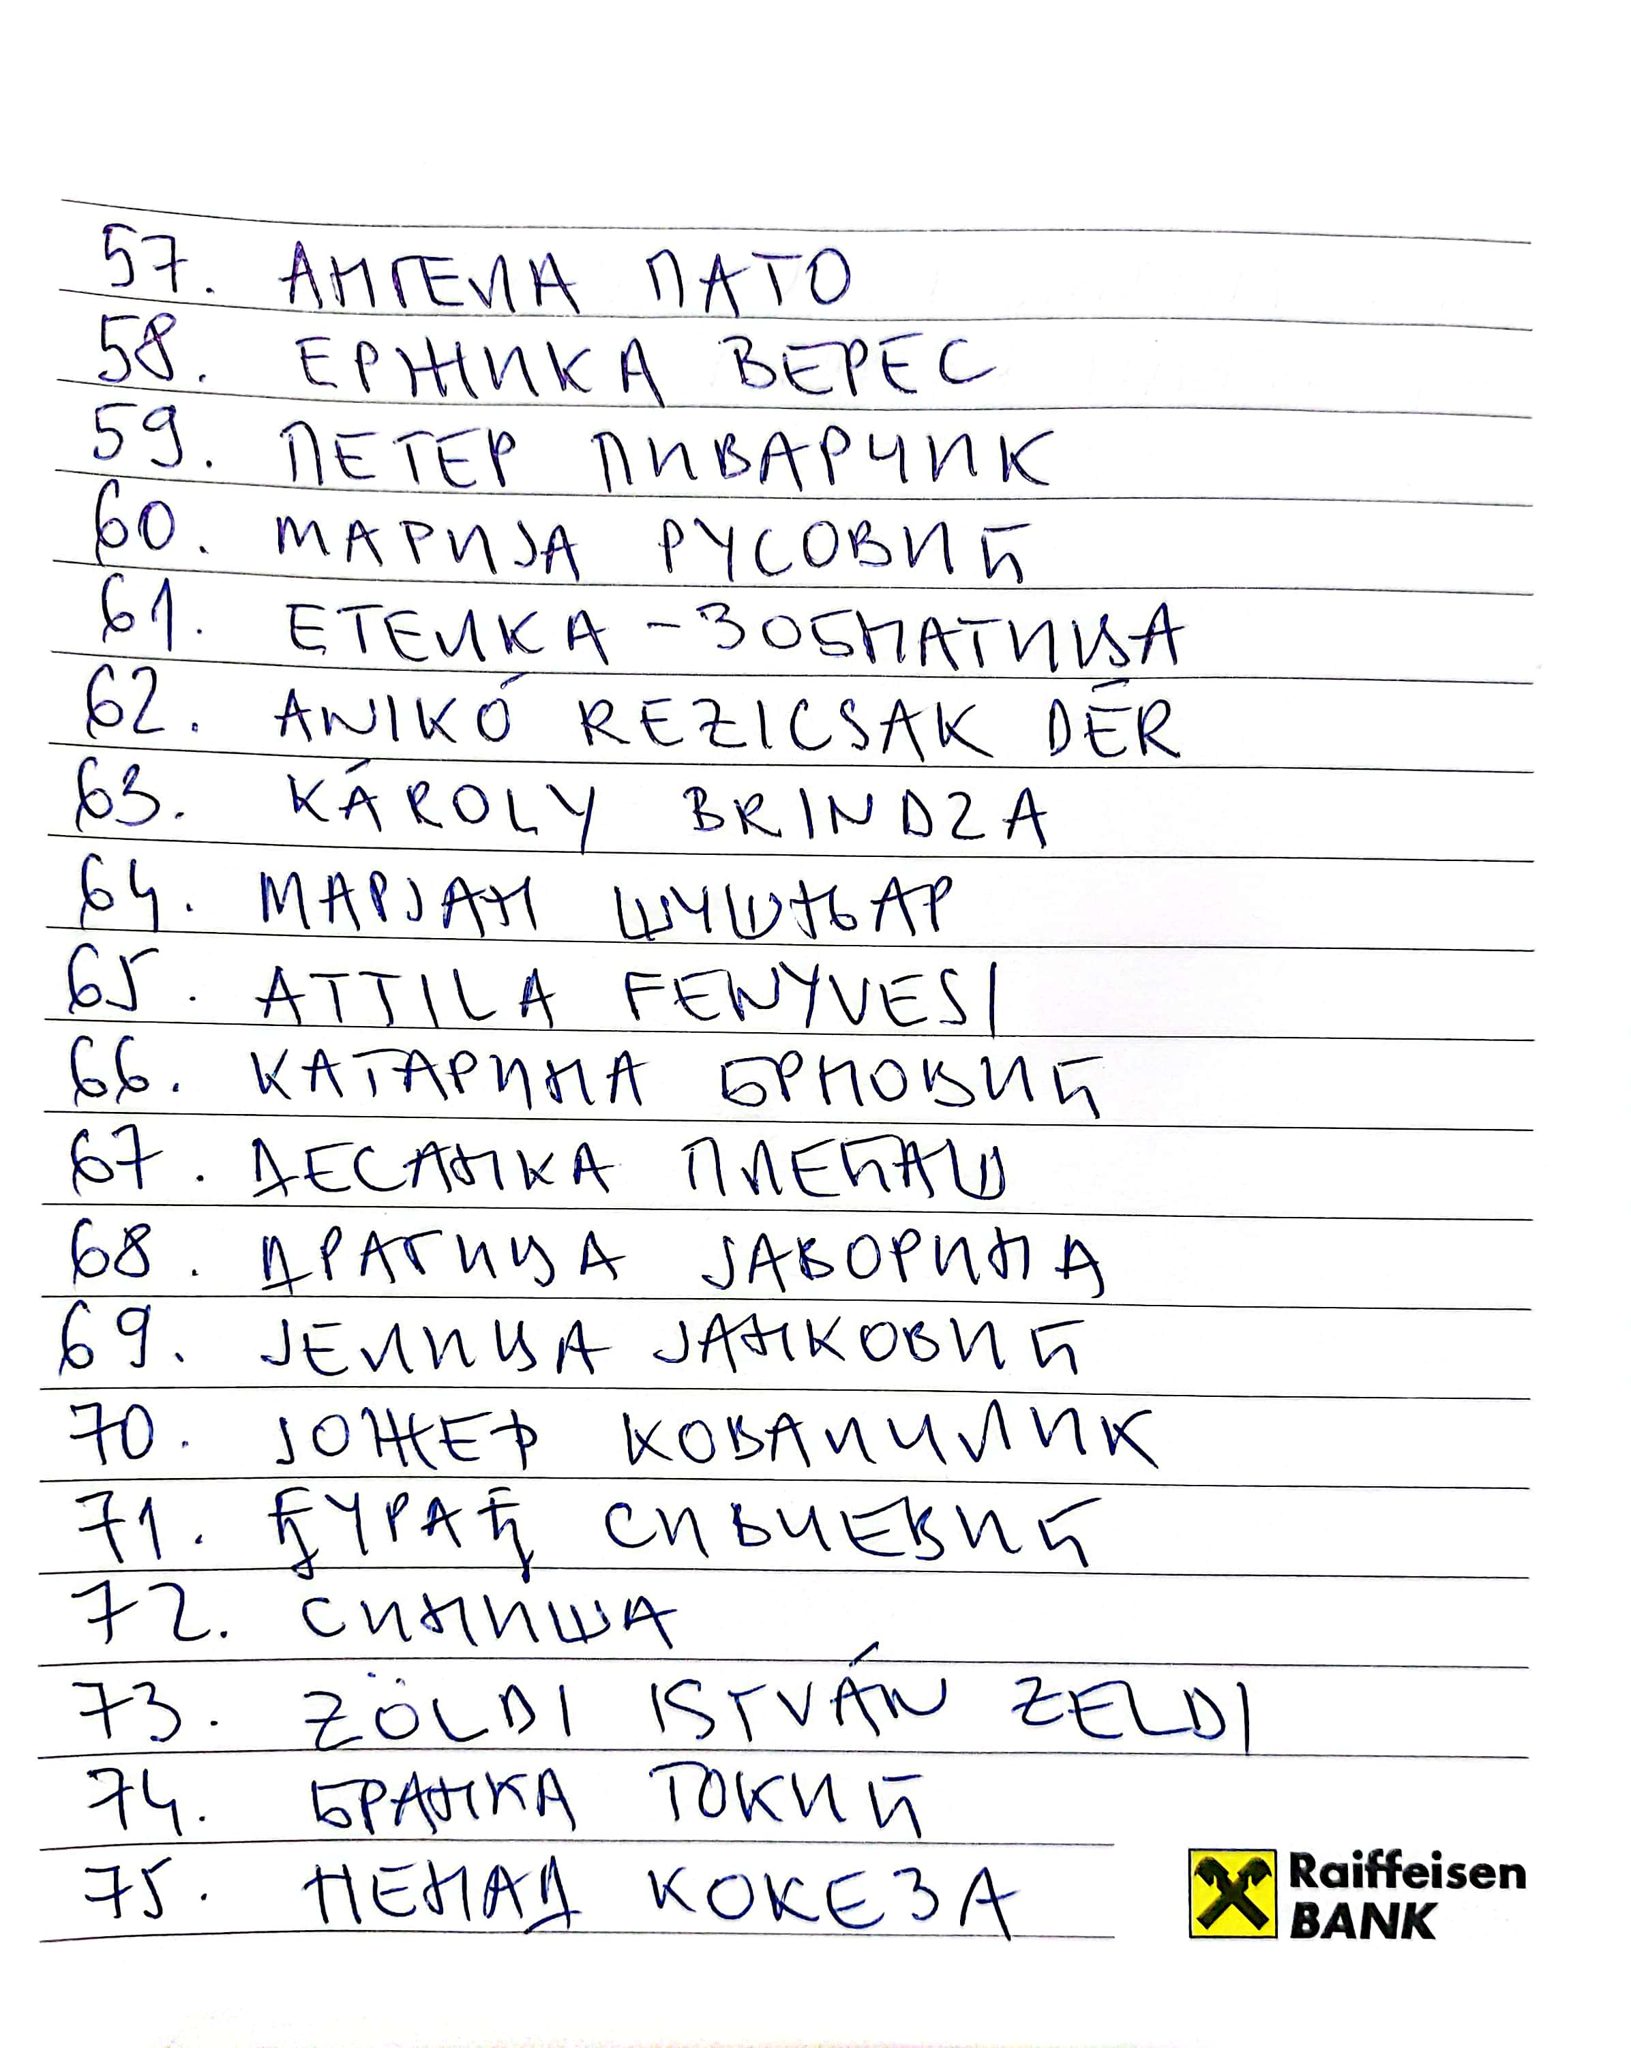 57. АНГЕЛА ПАТО
58. ЕРЖИКА ВЕРЕС
59. ПЕТЕР ПИВАРЧИК
60. МАРИЈА РУСОВИЋ
61. ЕТЕЛКА - ЗОБНАТИЦА
62. ANIKÓ REZICSAK DÉR
63. KÁROLY BRINDZA
64. МАРЈАН ШУШЊАР
65. ATTILA FENYVESI
66. КАТАРИНА БРНОВИЋ
67. ДЕСАНКА ПЛЕЋАШ
68. ДРАГИЦА ЈАВОРИНА
69. ЈЕЛИЦА ЈАНКОВИЋ
70. ЈОЖЕФ КОВАЛЧИЛИК
71. ЂУРАЂ СИВЧЕВИЋ
72. СИНИША
73. ZÖLDI ISTVÁN ZELDI
74. БРАНКА ТОКИЋ
75. НЕНАД КОКЕЗА
Raiffeisen
BANK